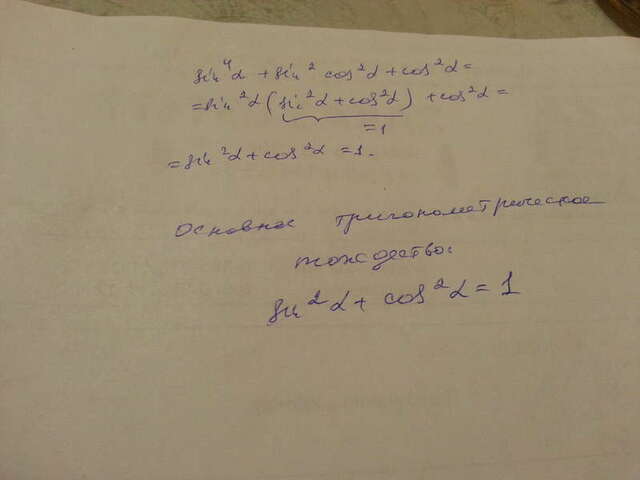 sin⁴α + sin² cos²α + cos²α =
= sin²α (sin²α + cos²α) + cos²α =
= 1
= sin²α + cos²α = 1.
Основное тригонометрическое
тождество:
sin²α + cos²α = 1